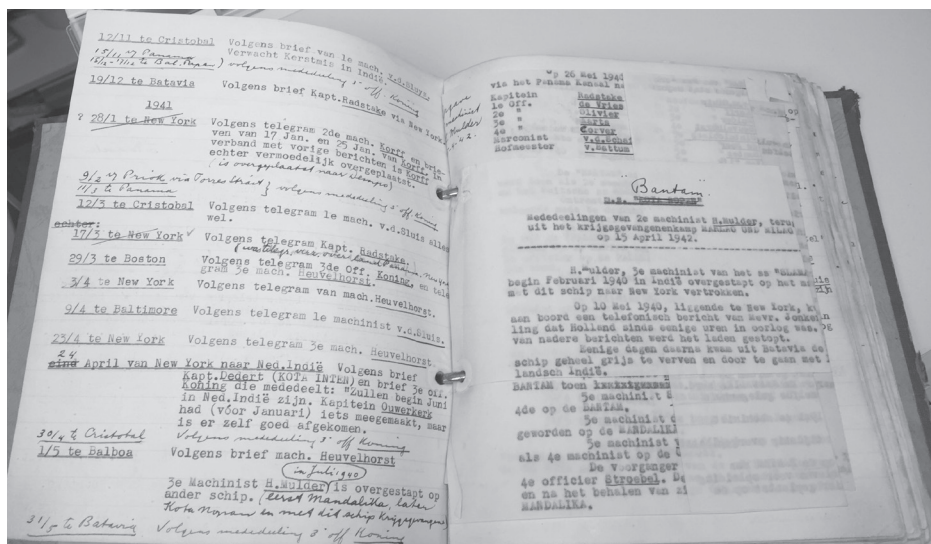 12/11 te Cristobal Volgens brief van 1e mach. K.C.Sluys.
Verwacht Kerstmis in Indië.
15/11 Panama
volgens mededeeling 3e off. Koning
19/12 te Batavia Volgens brief Kapt.Radstake via New York
1941
? 28/1 te New York Volgens telegram 2de mach. Korff en brie-
ven van 17 Jan. en 25 Jan. van Korff. In
verband met vorige berichten is Korff
echter vermoedelijk overgeplaatst.
(is overgeplaatst naar
9/2 Priok via Torres Straat } volgens mededeeling 3e off Koning
11/3 te Panama
12/3 te Cristobal Volgens telegram 1e mach. v.d.Sluis alles
wel.
achter:
17/3 te New York Volgens telegram Kapt. Radstake.
29/3 te Boston Volgens telegram 3de Off. Koning, en tele
gram 3e mach. Heuvelhorst.
3/4 te New York Volgens telegram van mach.Heuvelhorst.
9/4 te Baltimore Volgens telegram 1e machinist v.d.Sluis.
23/4 te New York Volgens telegram 3e mach. Heuvelhorst
24
eind April van New York naar Ned.Indië Volgens brief
Kapt.Dedert (KOTA INTEN)en brief 3e off.
Koning die mededeelt: "Zullen begin Juni
in Ned.Indië zijn. Kapitein Ouwerkerk
had (vóór Januari) iets meegemaakt, maar
is er zelf goed afgekomen.
30/4 te Cristobal Volgens mededeeling 3e off Koning
1/5 te Balboa Volgens brief mach. Heuvelhorst
in Juli 1940
3e Machinist H.Mulder is overgestapt op
ander schip. (eerst Mandalika, later
Kota Nopan en met dit schip Krijgsgevangen
31/5 te Batavia Volgens mededeeling 3e off Koning
Mulder
Op 26 Mei 194
via het Panama Kanaal
Kapitein Radstake
1e Off. de Vries
2e " Olivier
3e " Maria
4e " Corver
Marconist v.d.Schei
Hofmeester v.Battum
"Bantam"
M.S.
Mededeelingen van 2e machinist H.Mulder, teru
uit het krijgsgevangenenkamp MARLAG UND MILAG
op 15 April 1942.
H.Mulder, 3e machinist van het ss
begin Februari 1940 in Indië overgestapt op het
met dit schip naar New York vertrokken.
Op 10 Mei 1940, liggende te New York, k
aan boord een telefonisch bericht van Mevr. Jonke
ling dat Holland sinds eenige uren in oorlog was.
van nadere berichten werd het laden gestopt.
Eenige dagen daarna kwam uit Batavia de
schip geheel grijs te verven en door te gaan met
landsch Indië.
BANTAM toen
5e machinist
4de op de BANTAM.
5e machinist
geworden op de MANDALIKA
5e machinist
als 4e machinist op de
De voorganger
4e officier Stroebel.
en na het behalen van zi
MANDALIKA.